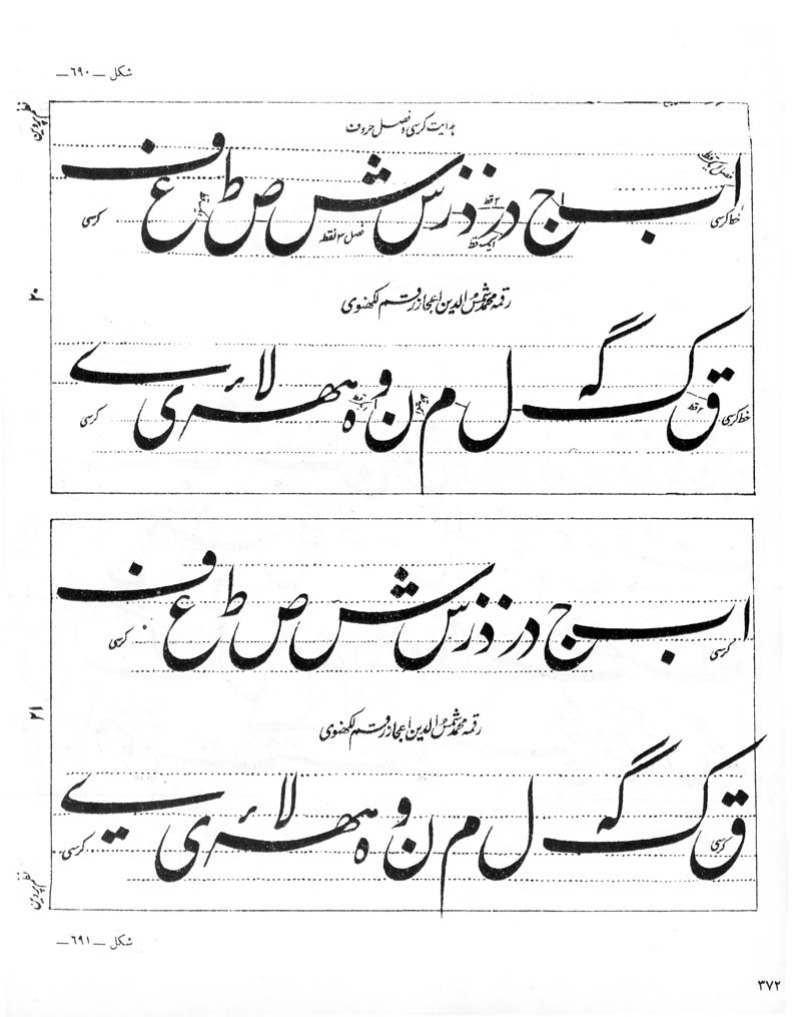 شكل ــ ٦٩٠ ــ
ہدایت کرسی و فصل حروف
ا ب ج د ر ذ ز س ش ص ط ع ف
خط کرسی
۲ قط
فصل ۳ نقطہ
ایک قط
کرسی
٢٠
رقمہ محمد شمس الدین اعجاز رقم لکھنوی
ق ک گ ل م ن و ہ ھ لا ئ ی ے
خط کرسی
۲ قط
کرسی
ا ب ج د ر ذ ز س ش ص ط ع ف
کرسی
کرسی
٢١
رقمہ محمد شمس الدین اعجاز رقم لکھنوی
ق ک گ ل م ن و ہ ھ لا ئ ی ے
کرسی
کرسی
شكل ــ ٦٩١ ــ
٣٧٢